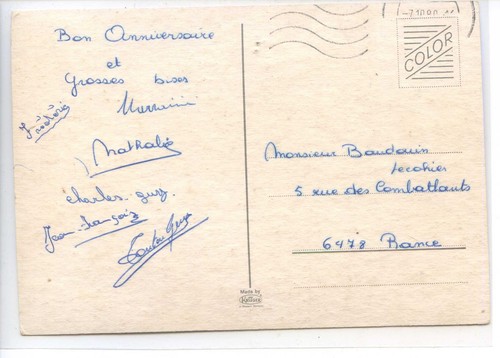 Bon Anniversaire
et
Grosses bises
Frédéric
Nathalie
Charles-guy
Jean-François
Tonton Guy
-7.10.80
COLOR
Monsieur Baudouin
Lecohier
5 rue des Combattants
6478 Rance
Made by